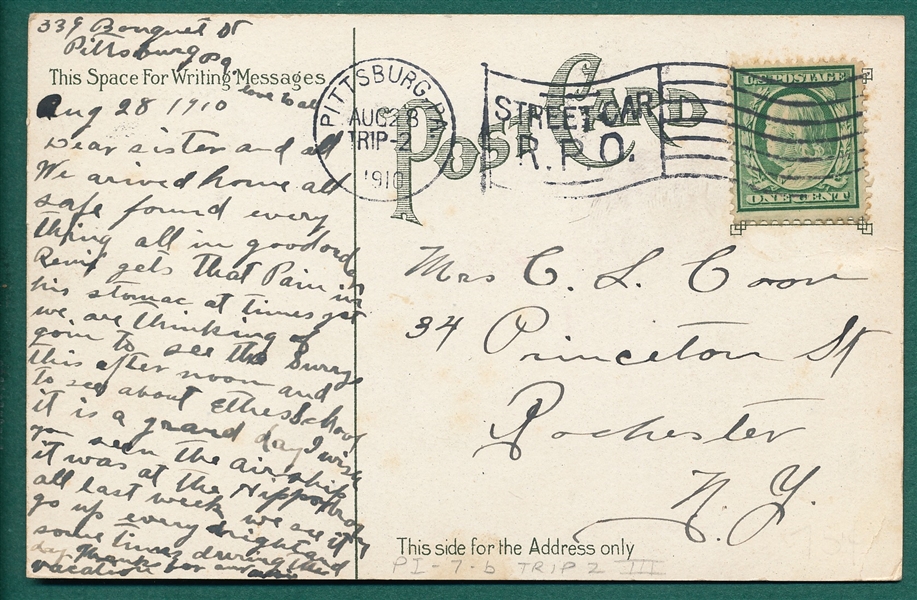 339 Bouquet St
Pittsburg Pa.
This Space For Writing Messages
love to all
Aug 28 1910
Dear sister and all
We arived home all
safe found every
thing all in good order
gets that Pain in
his stomac at times yet
we are thinking of
goin to see the Burrys
this after noon and
to see about Ethes School
it is a grand day I wish
you seen the air ship
it was at the Hippodrom
all last week we see it
go up every night and
some times during the
day Thank for our
vacation
POST CARD
PITTSBURG, PA.
AUG 28
TRIP-2
1910
STREET CAR
R.P.O.
U.S. POSTAGE
ONE CENT
Mrs C. L. Coon
34 Princeton St
Rochester
N.Y.
This side for the Address only
PI-7-b TRIP 2 III